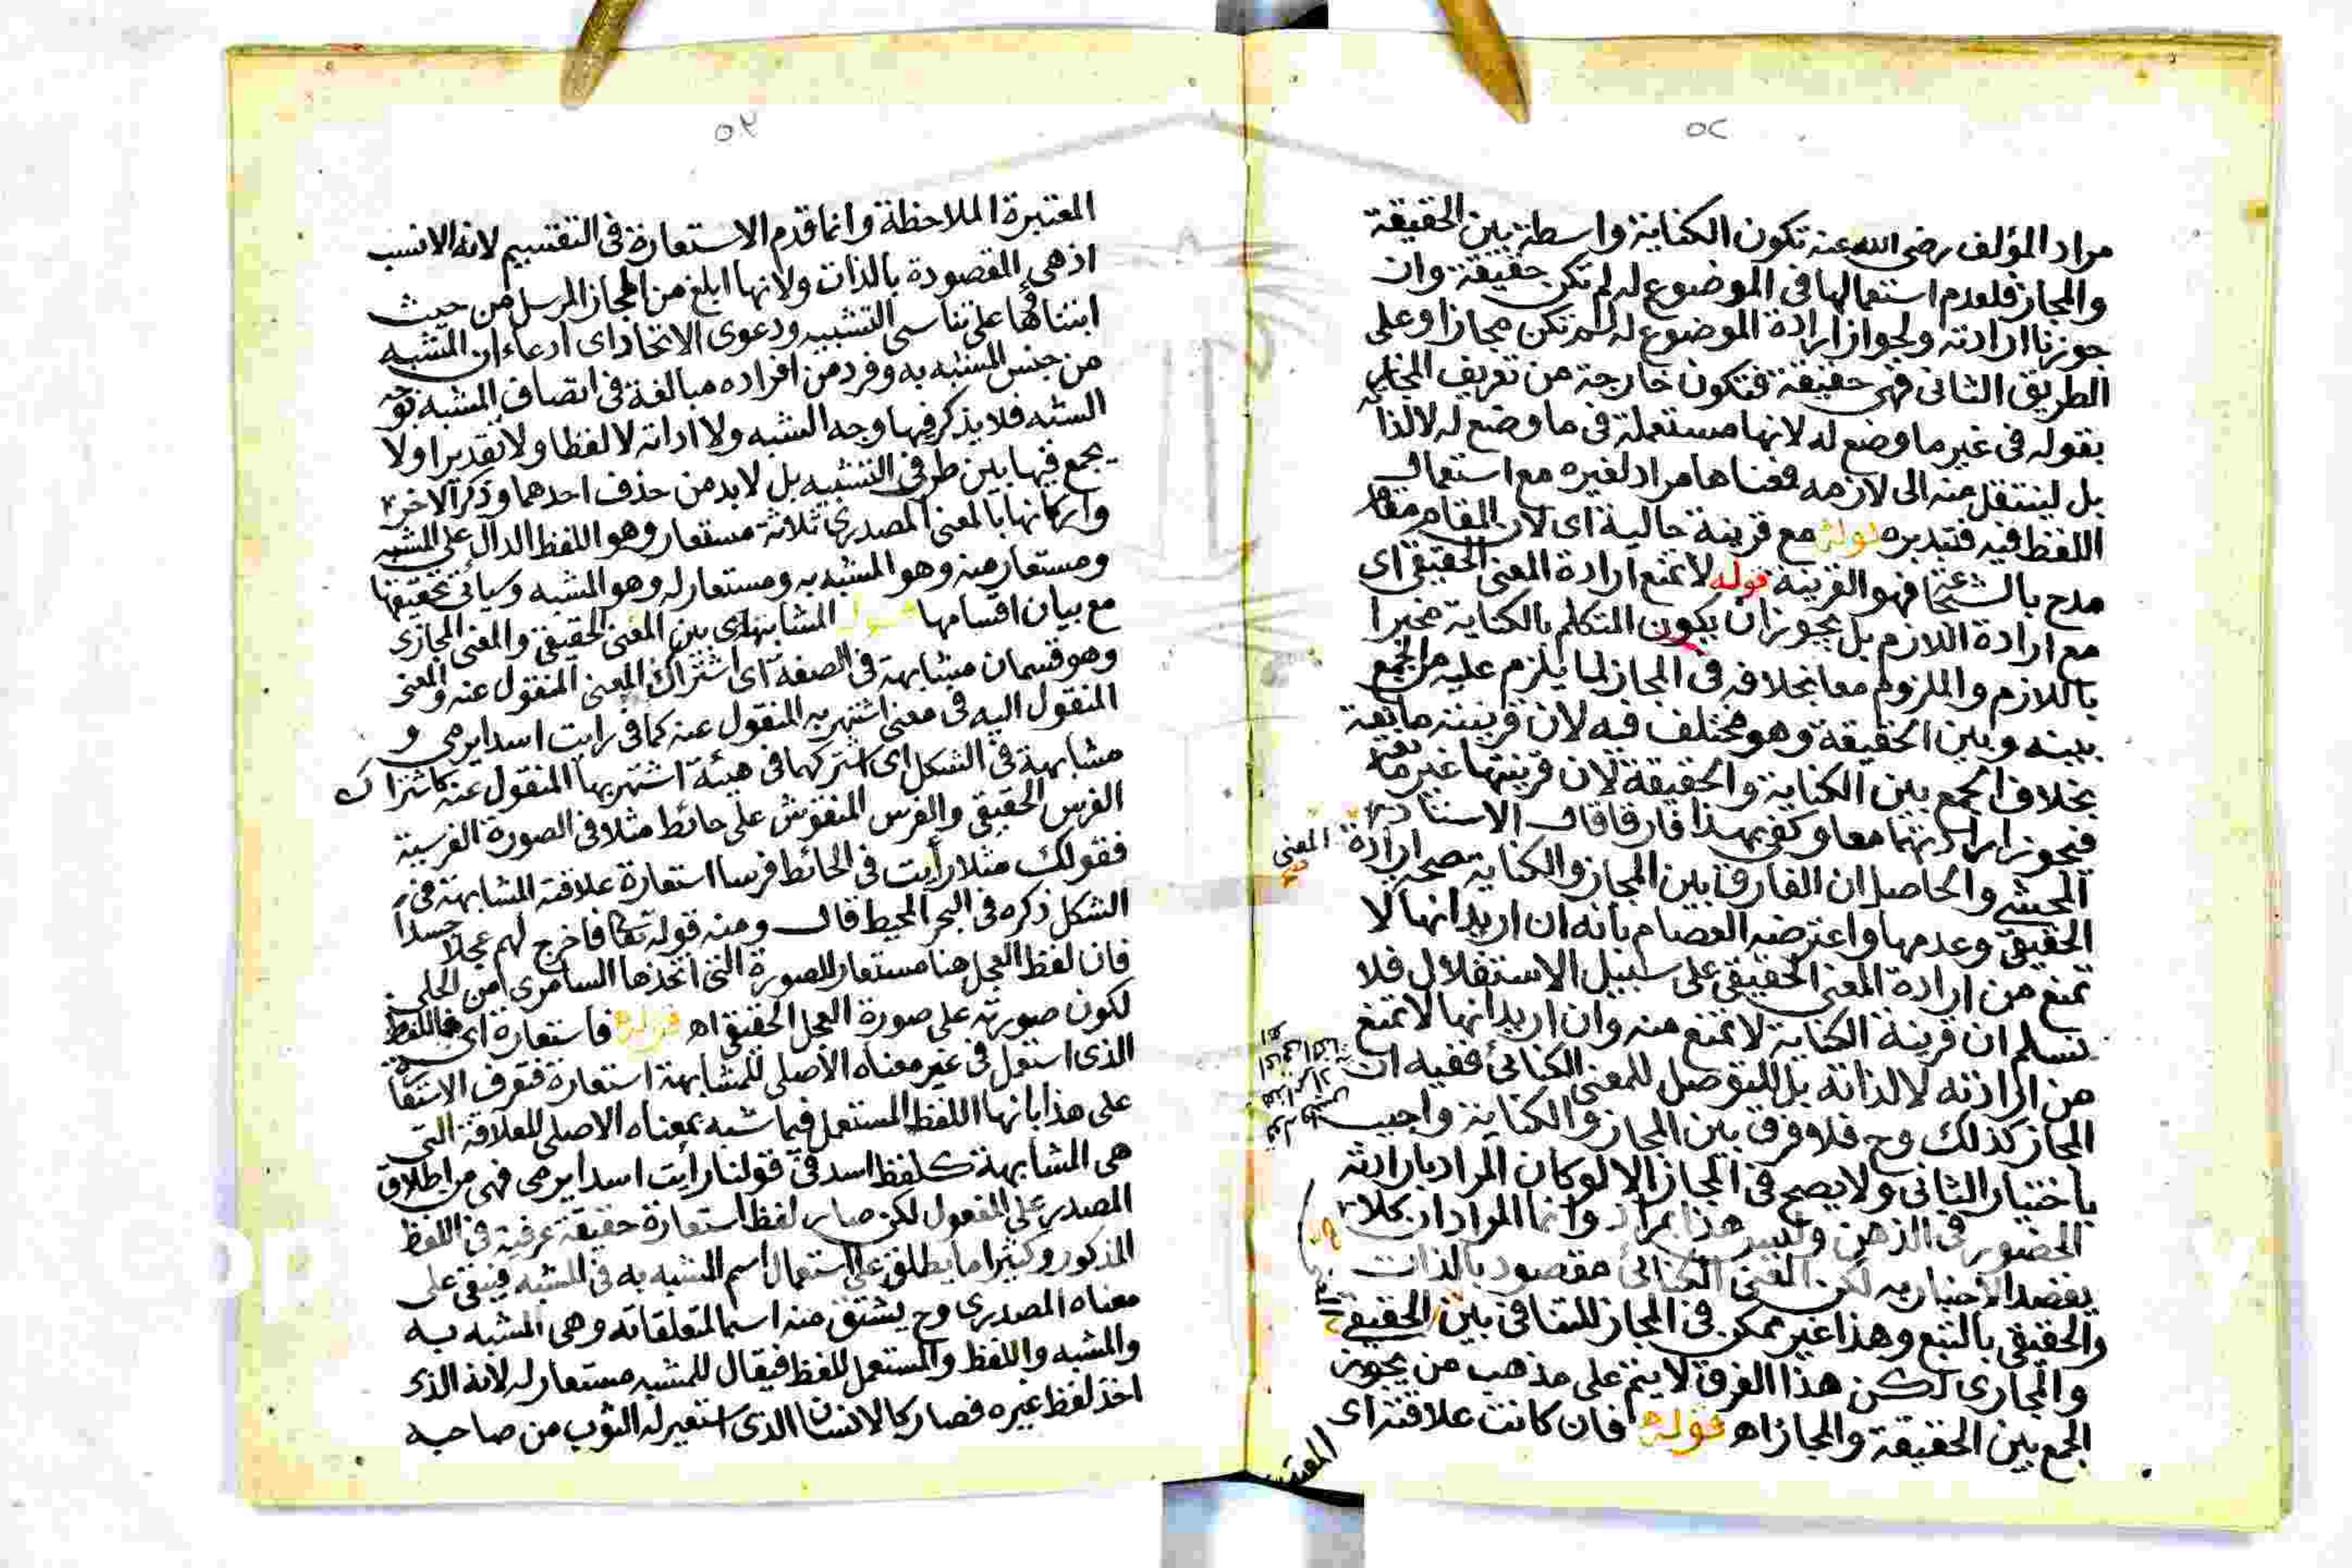 ٥٢
مراد المؤلف رضى الله عنه تكون الكناية واسطة بين الحقيقة
والمجاز فلعدم استعمالها فى الموضوع له لم تكن حقيقة وان
جوزنا ارادته ولجواز ارادة الموضوع له لم تكن مجازا وعلى
الطريق الثانى فهى حقيقة فتكون خارجة من تعريف المجاز
بقوله فى غير ما وضع له لانها مستعملة فى ما وضع له لا لذا
بل لينتقل منه الى لازمه فمعناها مراد لغيره مع استعمال
اللفظ فيه فتدبره قوله مع قرينة حالية اى لان المقام مقام
مدح بالشجا فهو القرينة قوله لا تمنع ارادة المعنى الحقيقى اى
مع ارادة اللازم بل يجوز ان يكون المتكلم بالكناية مخبرا
باللازم والملزوم معا بخلافه فى المجاز لما يلزم عليه من الجمع
بينه وبين الحقيقة وهو مختلف فيه لان قرينته مانعة
بخلاف الجمع بين الكناية والحقيقة لان قرينتها غير مانعة
فيجوز ارادتهما معا وكفى بهذا فارقا قال الاستاذ
الحبشى والحاصل ان الفارق بين المجاز والكناية صحة ارادة المعنى
الحقيقى وعدمها واعترضه العصام بانه ان اريد انها لا
تمنع من ارادة المعنى الحقيقى على سبيل الاستقلال فلا
نسلم ان قرينة الكناية لا تمنع منه وان اريد انها لا تمنع
من ارادته لا لذاته بل للتوصل للمعنى الكنائى ففيه ان
المجاز كذلك وح فلا فرق بين المجاز والكناية واجيب
باختيار الثانى ولا يصح فى المجاز الا لو كان المراد بارادته
الحضور فى الذهن وليس هذا بمراد وانما المراد ان كلا
يقصد الاخبار به لكن المعنى الكنائى مقصود بالذات
والحقيقى بالتبع وهذا غير ممكن فى المجاز للتنافى بين الحقيقى
والمجازى لكن هذا الفرق لا يتم على مذهب من يجوز
الجمع بين الحقيقة والمجاز اه قوله فان كانت علاقته اى
٥٣
المعتبرة الملاحظة وانما قدم الاستعارة فى التقسيم لانه الانسب
اذ هى المقصودة بالذات ولانها ابلغ من المجاز المرسل من حيث
ابتناؤها على تناسى التشبيه ودعوى الاتحاد اى ادعاء ان المشبه
من جنس المشبه به وفرد من افراده مبالغة فى اتصاف المشبه بوجه
الشبه فلا يذكر فيها وجه الشبه ولا اداته لا لفظا ولا تقديرا ولا
يجمع فيها بين طرفى التشبيه بل لا بد من حذف احدهما وذكر الاخر
واركانها بالمعنى المصدرى ثلاثة مستعار وهو اللفظ الدال على المشبه
ومستعار منه وهو المشبه به ومستعار له وهو المشبه وسياتى تحقيقها
مع بيان اقسامها قوله المشابهة اى بين المعنى الحقيقى والمعنى المجازى
وهو قسمان مشابهة فى الصفة اى اشتراك المعنى المنقول عنه والمعنى
المنقول اليه فى معنى اشتهر به المنقول عنه كما فى رايت اسدا يرمى و
مشابهة فى الشكل اى اشتركهما فى هيئة اشتهر بها المنقول عنه كاشتراك
الفرس الحقيقى والفرس المنقوش على حائط مثلا فى الصورة الفرسية
فقولك مثلا رأيت فى الحائط فرسا استعارة علاقته المشابهة فى
الشكل ذكره فى البحر المحيط قال ومنه قوله تعا فاخرج لهم عجلا جسدا
فان لفظ العجل هنا مستعار للصورة التى اتخذها السامرى من الحلى
لكون صورته على صورة العجل الحقيقى اه قوله فاستعارة اى فاللفظ
الذى استعمل فى غير معناه الأصلى للمشابهة استعارة فتعرف الاستعارة
على هذا بانها اللفظ المستعمل فيما شبه بمعناه الاصلى للعلاقة التى
هى المشابهة كلفظ اسد فى قولنا رأيت اسدا يرمى فهى من اطلاق
المصدر على المفعول لكن صار لفظ استعارة حقيقة عرفية فى اللفظ
المذكور وكثيرا ما يطلق على استعمال اسم المشبه به فى المشبه فيبقى على
معناه المصدرى وح يشتق منه اسما لمتعلقاته وهى المشبه به
والمشبه واللفظ والمستعمل للفظ فيقال للمشبه مستعار له لانه الذى
اخذ لفظ غيره فصار كالانسان الذى استعير له الثوب من صاحبه